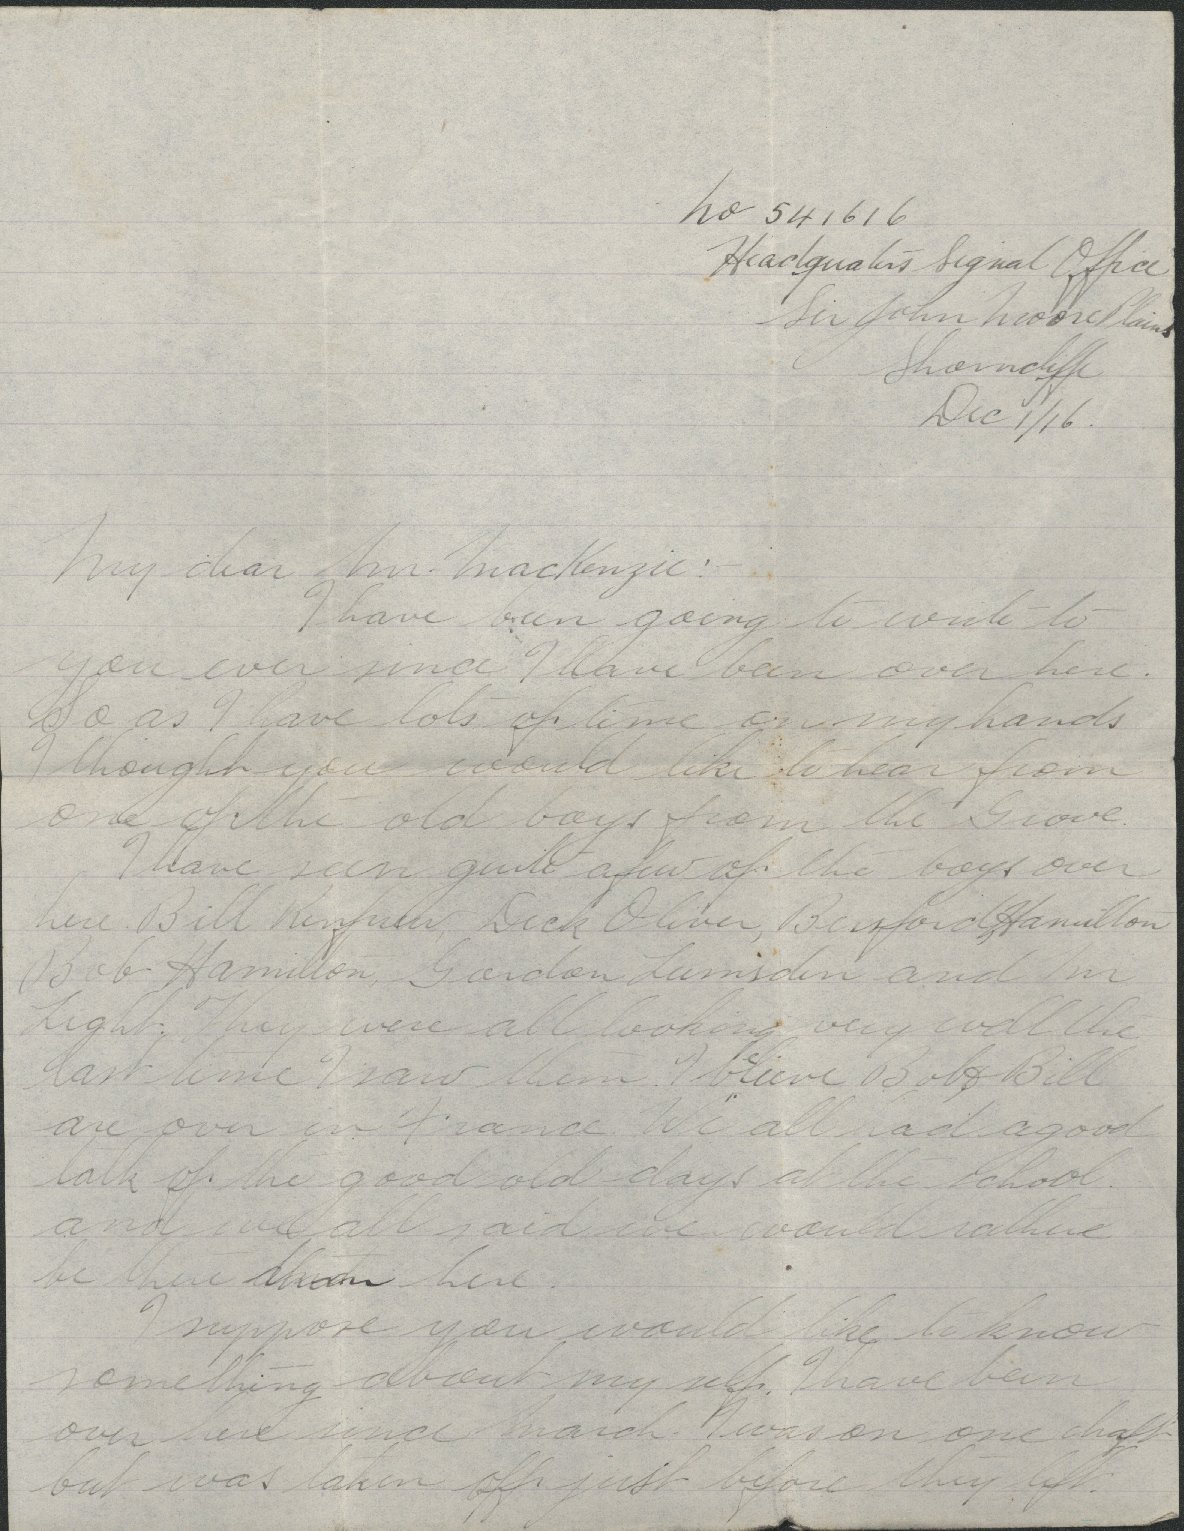 No 541616
Headquaters Signal Office
Sir John Moore Plains
Shorncliffe
Dec 1/16.
My dear Mr. MacKenzie:-
I have been going to write to
you ever since I have been over here.
So as I have lots of time on my hands
I thought you would like to hear from
one of the old boys from the Grove.
I have seen quite a few of the boys over
here. Bill Renfrew, Dick Oliver, Hamilton
Bob Hamilton, Gordon Lumsden and Mr
Light. They were all looking very well the
last time I saw them. I believe Bob & Bill
are over in France. We all had a good
talk of the good old days at the school.
and we all said we would rathere
be there than here.
I suppose you would like to know
something about my self. I have been
over here since March. I was on one draft
but was taken off just before they left.